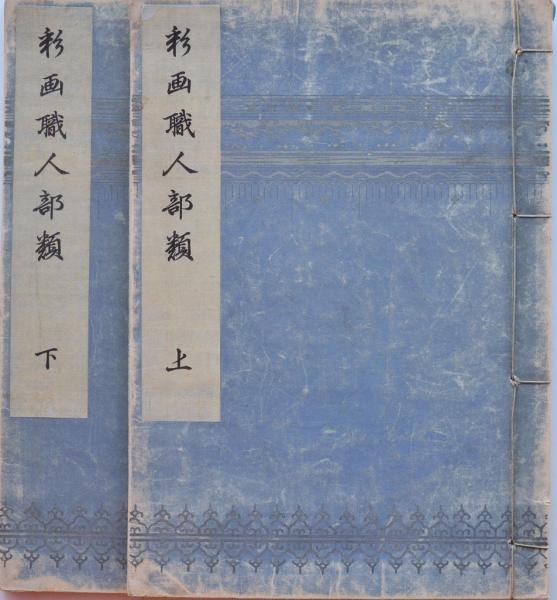 彩画職人部類 上
彩画職人部類 下